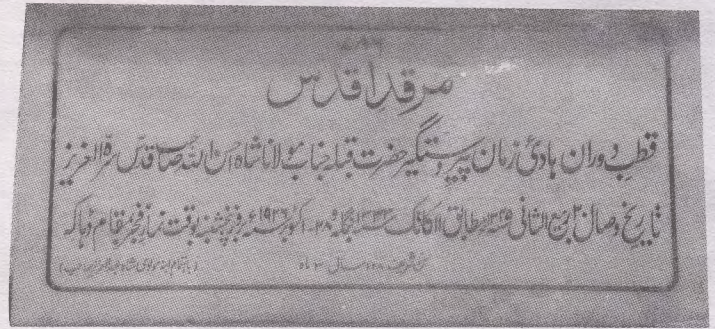 ۷۸۶
مرقد اقدس
قطب دوران ہادئ زمان پیر دستگیر حضرت قبلہ جناب مولانا شاہ احسن اللہ صاحب قدس سرہ العزیز
تاریخ وصال ۲۰ ربیع الثانی ۱۳۴۵ھ مطابق ۱۱ کاتک ۱۳۳۳ بنگلہ ۲۸ اکتوبر ۱۹۲۶ء بروز پنجشنبہ بوقت نماز فجر بمقام ڈھاکہ
سن شریف ۱۲۸ سال ماہ